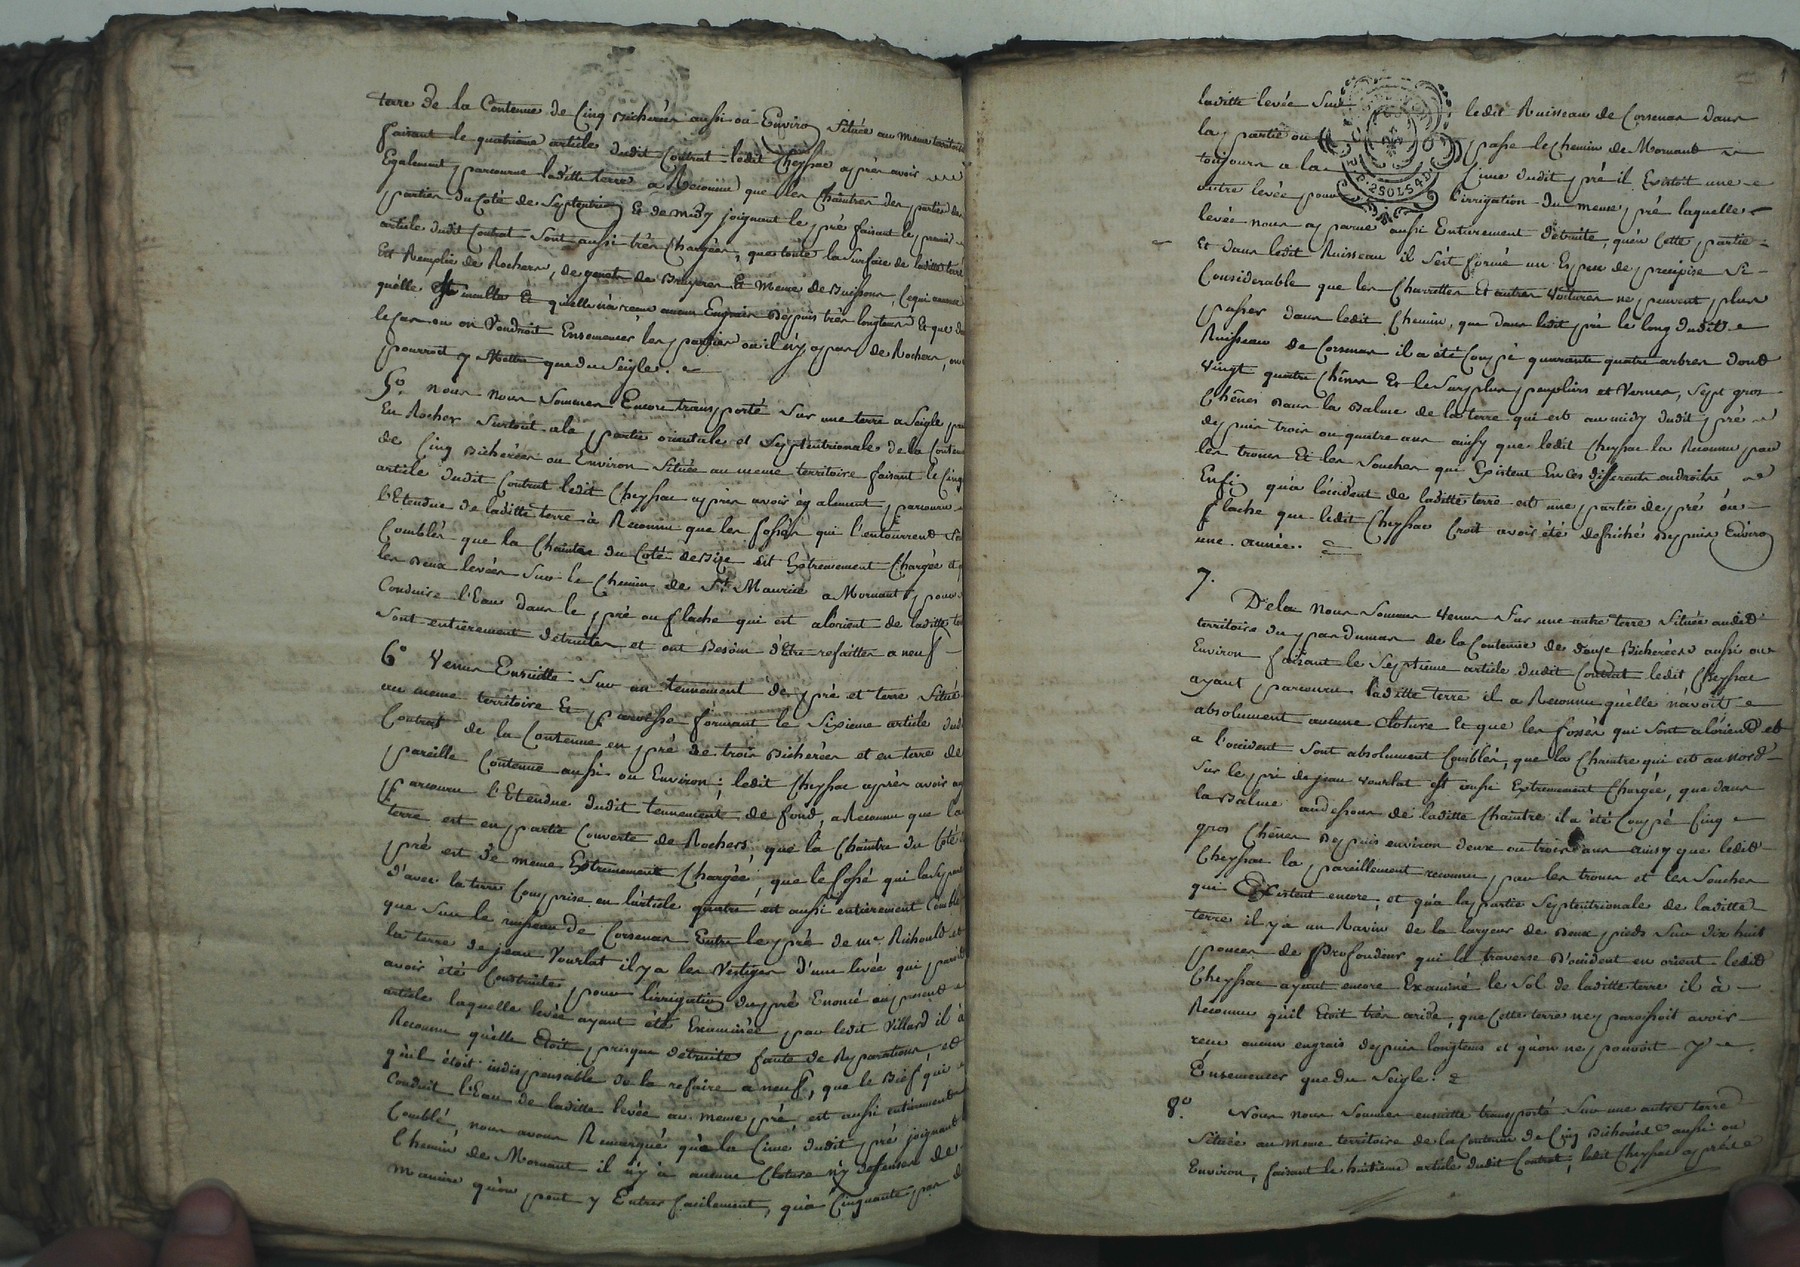 terre de la Contenue de Cinq Bicherées aussi ou Enviro Située au meme territoire
faisant le quatrieme article dudit Contrat ledit Cheyssac apprès avoir
Egalement parcourue laditte terre a Reconnue que les Chaintres des parties des
parties du Coté de Septentrion Et de midy joignant le pré faisant le premier
article dudit Contrat sont aussi très Chargées, que toute la Surface de laditte terre
Est Remplie de Rochers, de genets de Bruyeres Et meme de Buissons, Ce qui
qu'elle Est inculte Et qu'elle n'a recue aucun Engrais Depuis très longtems Et que dans
le Cas ou on Voudroit Ensemencer les parties ou il n'y a pas de Rochers, on
pourroit y Mettre que du Seigle.
5° nous nous Sommes Encore transporté Sur une terre a Seigle
En Rocher Surtout a la partie orientale et Septentrionale de la Contenue
de Cinq Bicherées ou Environ Située au meme territoire faisant le Cinq
article dudit Contrat ledit Cheyssac apprès avoir également parcourue
l'Etendue de laditte terre à Reconnu que les fossés qui l'entourrent Sont
Comblés que la Chaintre du Coté de Bize est Extremement Chargée et
les Deux levées Sur le Chemin de St Maurice a Mornant pour
Conduire l'Eau dans le pré ou flache qui est a l'orient de laditte terre
Sont entierement détruites et ont Besoin d'Etre refaittes a neuf
6° Venus Ensuitte Sur un tennement de pré et terre Situé
au meme territoire Et paroisse formant le Sixieme article dudit
Contrat de la Contenue en pré de trois Bicherées et en terre de
pareille Contenue aussi ou Environ; ledit Cheyssac apprès avoir
parcouru l'Etendue dudit tennement de fond, a Reconnu que la
terre est en partie Couverte de Rochers, que la Chaintre du Coté
pré est de meme Extremement Chargée, que le fossé qui la Separe
d'avec la terre Comprise en l'article quatre est aussi entierement Comblé
que Sur le ruisseau de Corsenas Entre le pré de Mr. Richould et
la terre de jean Vourlat il y a les Vestiges d'une levée qui paroit
avoir été Construite pour l'irrigation du pré Enoncé au present
article laquelle levée ayant été Examinée par ledit Villard il à
Reconnu qu'elle Etoit presque détruite faute de Reparations, et
qu'il étoit indispensable de la refaire a neuf, que le Bief qui
Conduit l'Eau de laditte levée au meme pré, est aussi entierement
Comblé, nous avons Remarqué qu'a la Cime dudit pré joignant
Chemin de Mornant il n'y à aucune Cloture n'y deffenses de
Maniere qu'on peut y Entrer facilement, qu'à Cinquante pas de
laditte levée Sur ledit Ruisseau de Corsenas dans
la partie ou passe le Chemin de Mornant
toujours a la Cime dudit pré il Existoit une
autre levée pour l'irrigation du meme pré laquelle
levée nous a parue aussi Entierement détruite, qu'en Cette partie
Et dans ledit Ruisseau il S'est formé un Espece de precipise Si
Considerable que les Charrettes Et autres Voitures ne peuvent plus
passer dans ledit Chemin, que dans ledit pré le long dudit
Ruisseau de Corsenas il a été Coupé quarante quatre arbres dont
Vingt quatre Chênes Et le Surplus peupliers et Vernes, Sept gros
Chênes Dans la Balme de la terre qui est au midy dudit pré
depuis trois ou quatre ans ainsy que ledit Cheyssac la Reconnu par
les troncs Et les Souches qui Existent En Ces differents endroits
Enfin qu'a l'occident de laditte terre est une partie de pré ou
flache que ledit Cheyssac Croit avoir été defriché Depuis Enviro
une année.
7.
Dela nous Sommes Venus Sur une autre terre Située audit
territoire du pas Dumas de la Contenue de douze Bicherées aussi ou
Environ faisant le Septieme article dudit Contrat ledit Cheyssac
ayant parcouru laditte terre il a Reconnu qu'elle n'avoit
absolument aucune cloture Et que les fossés qui Sont a l'orient et
a l'occident Sont absolument Comblés, que la Chaintre qui est au nord
Sur le pré de jean Vourlat est aussi Extremement Chargée, que dans
la Balme audessous de laditte Chaintre il a été Coupé Cinq
gros Chênes Depuis environ deux ou trois ans ainsy que ledit
Cheyssac la pareillement reconnu par les troncs et les Souches
qui Existent encore, et qu'a la partie Septentrionale de laditte
terre il y a un Ravin de la largeur de Deux pieds Sur dix huit
pouces de Profondeur qui la traverse D'occident en orient ledit
Cheyssac ayant encore Examiné le Sol de laditte terre il à
Reconnu qu'il Etoit très aride, que Cette terre ne paroissoit avoir
recue aucun engrais depuis longtems et qu'on ne pouvoit y
Ensemencer que du Seigle.
8° Nous nous Sommes ensuitte transporté Sur une autre terre
Située au meme territoire de la Contenue de Cinq Bicherées aussi ou
Environ, faisant le huitieme article dudit Contrat; ledit Cheyssac apprès
2 SOLS 4 D